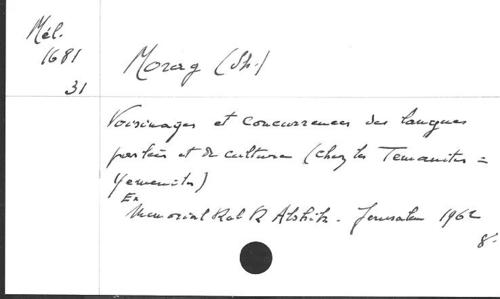 Mél.
1681
31
Morag (Sh.)
Voisinages et concurrences des langues
parlées et de culture (chez les Temanites =
Yemenites)
Ex
Memorial Kal R Atshitz. Jerusalem 1962
8.